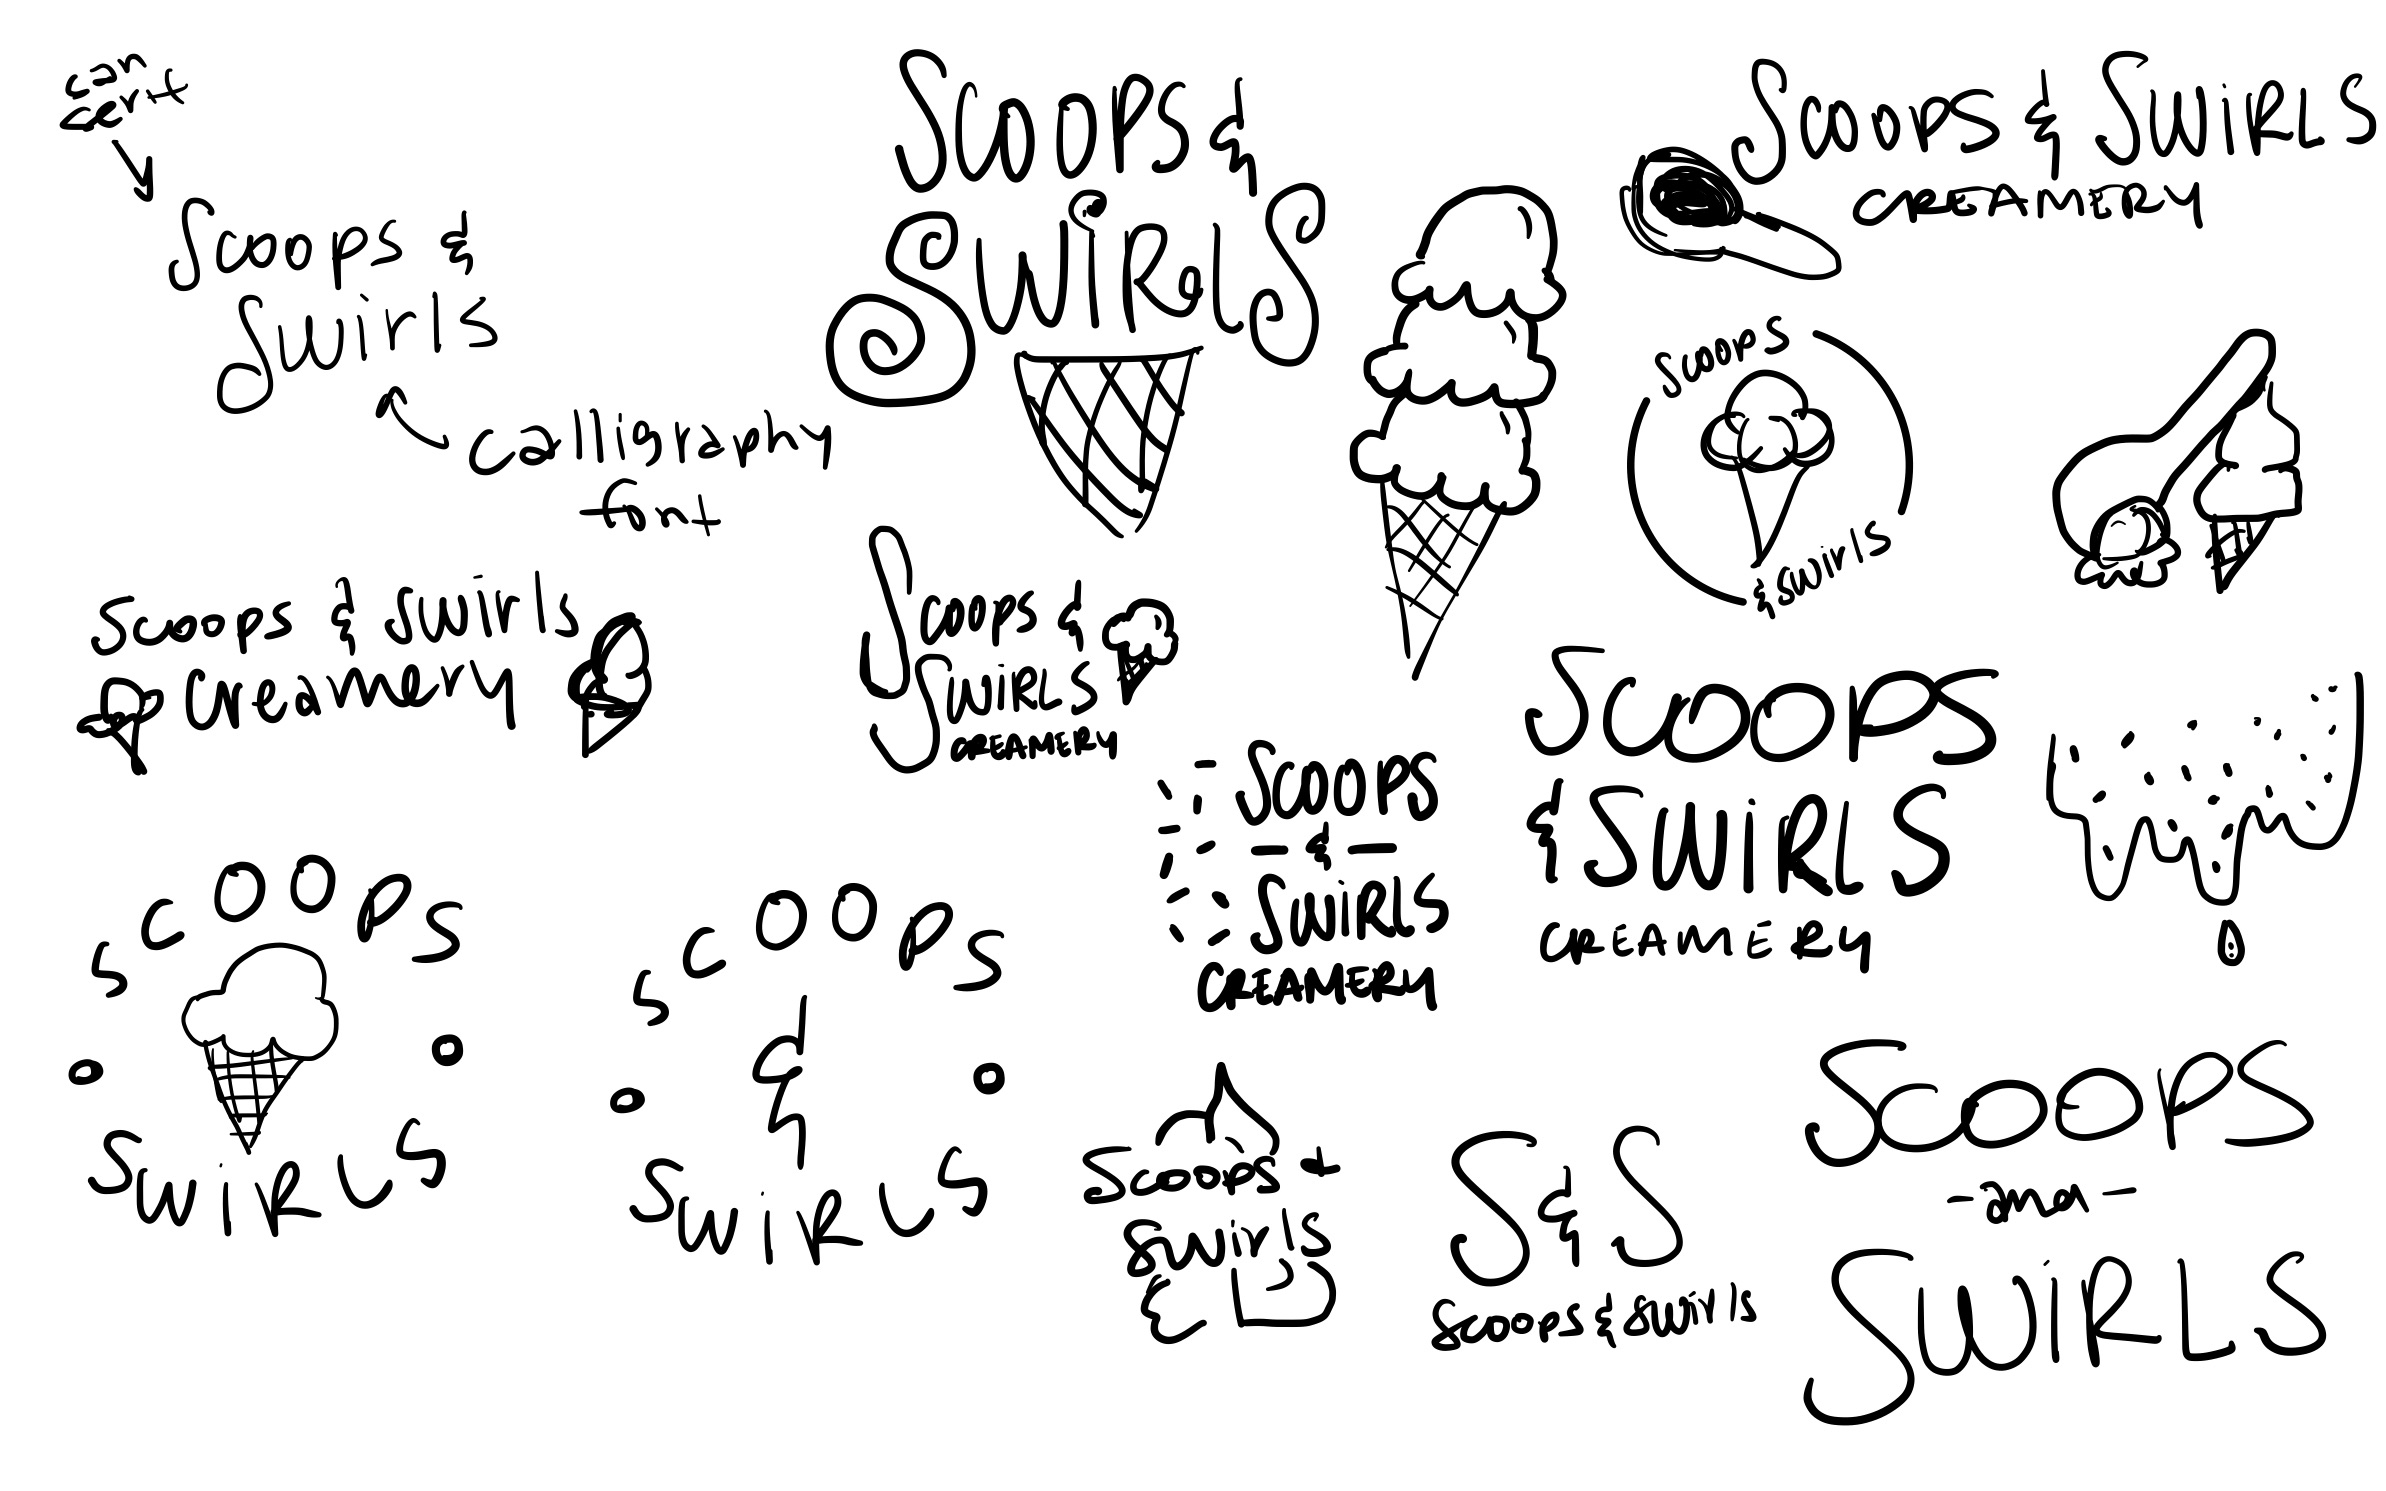 San
Serif
Scoops &
Swirls
calligraphy
font
Scoops &
Swirls
Scoops & Swirls
CREAMERY
Scoops
& Swirls
Scoops & Swirls
Creamery
Scoops &
Swirls
CREAMERY
Scoops
&
Swirls
CREAMERY
Scoops
& Swirls
CREAMERY
Scoops
Swirls
Scoops
&
Swirls
Scoops +
Swirls
S&S
Scoops & Swirls
Scoops
-and-
Swirls